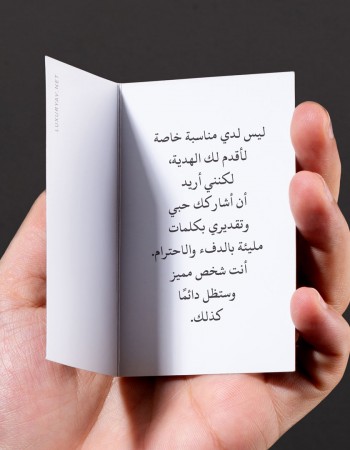 ليس لدي مناسبة خاصة
لأقدم لك الهدية،
لكنني أريد
أن أشاركك حبي
وتقديري بكلمات
مليئة بالدفء والاحترام.
أنت شخص مميز
وستظل دائمًا
كذلك.
LUXURYAY.NET